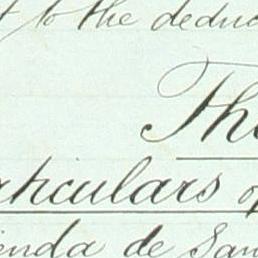 t to the deduc
The
rticulars of
ienda de San